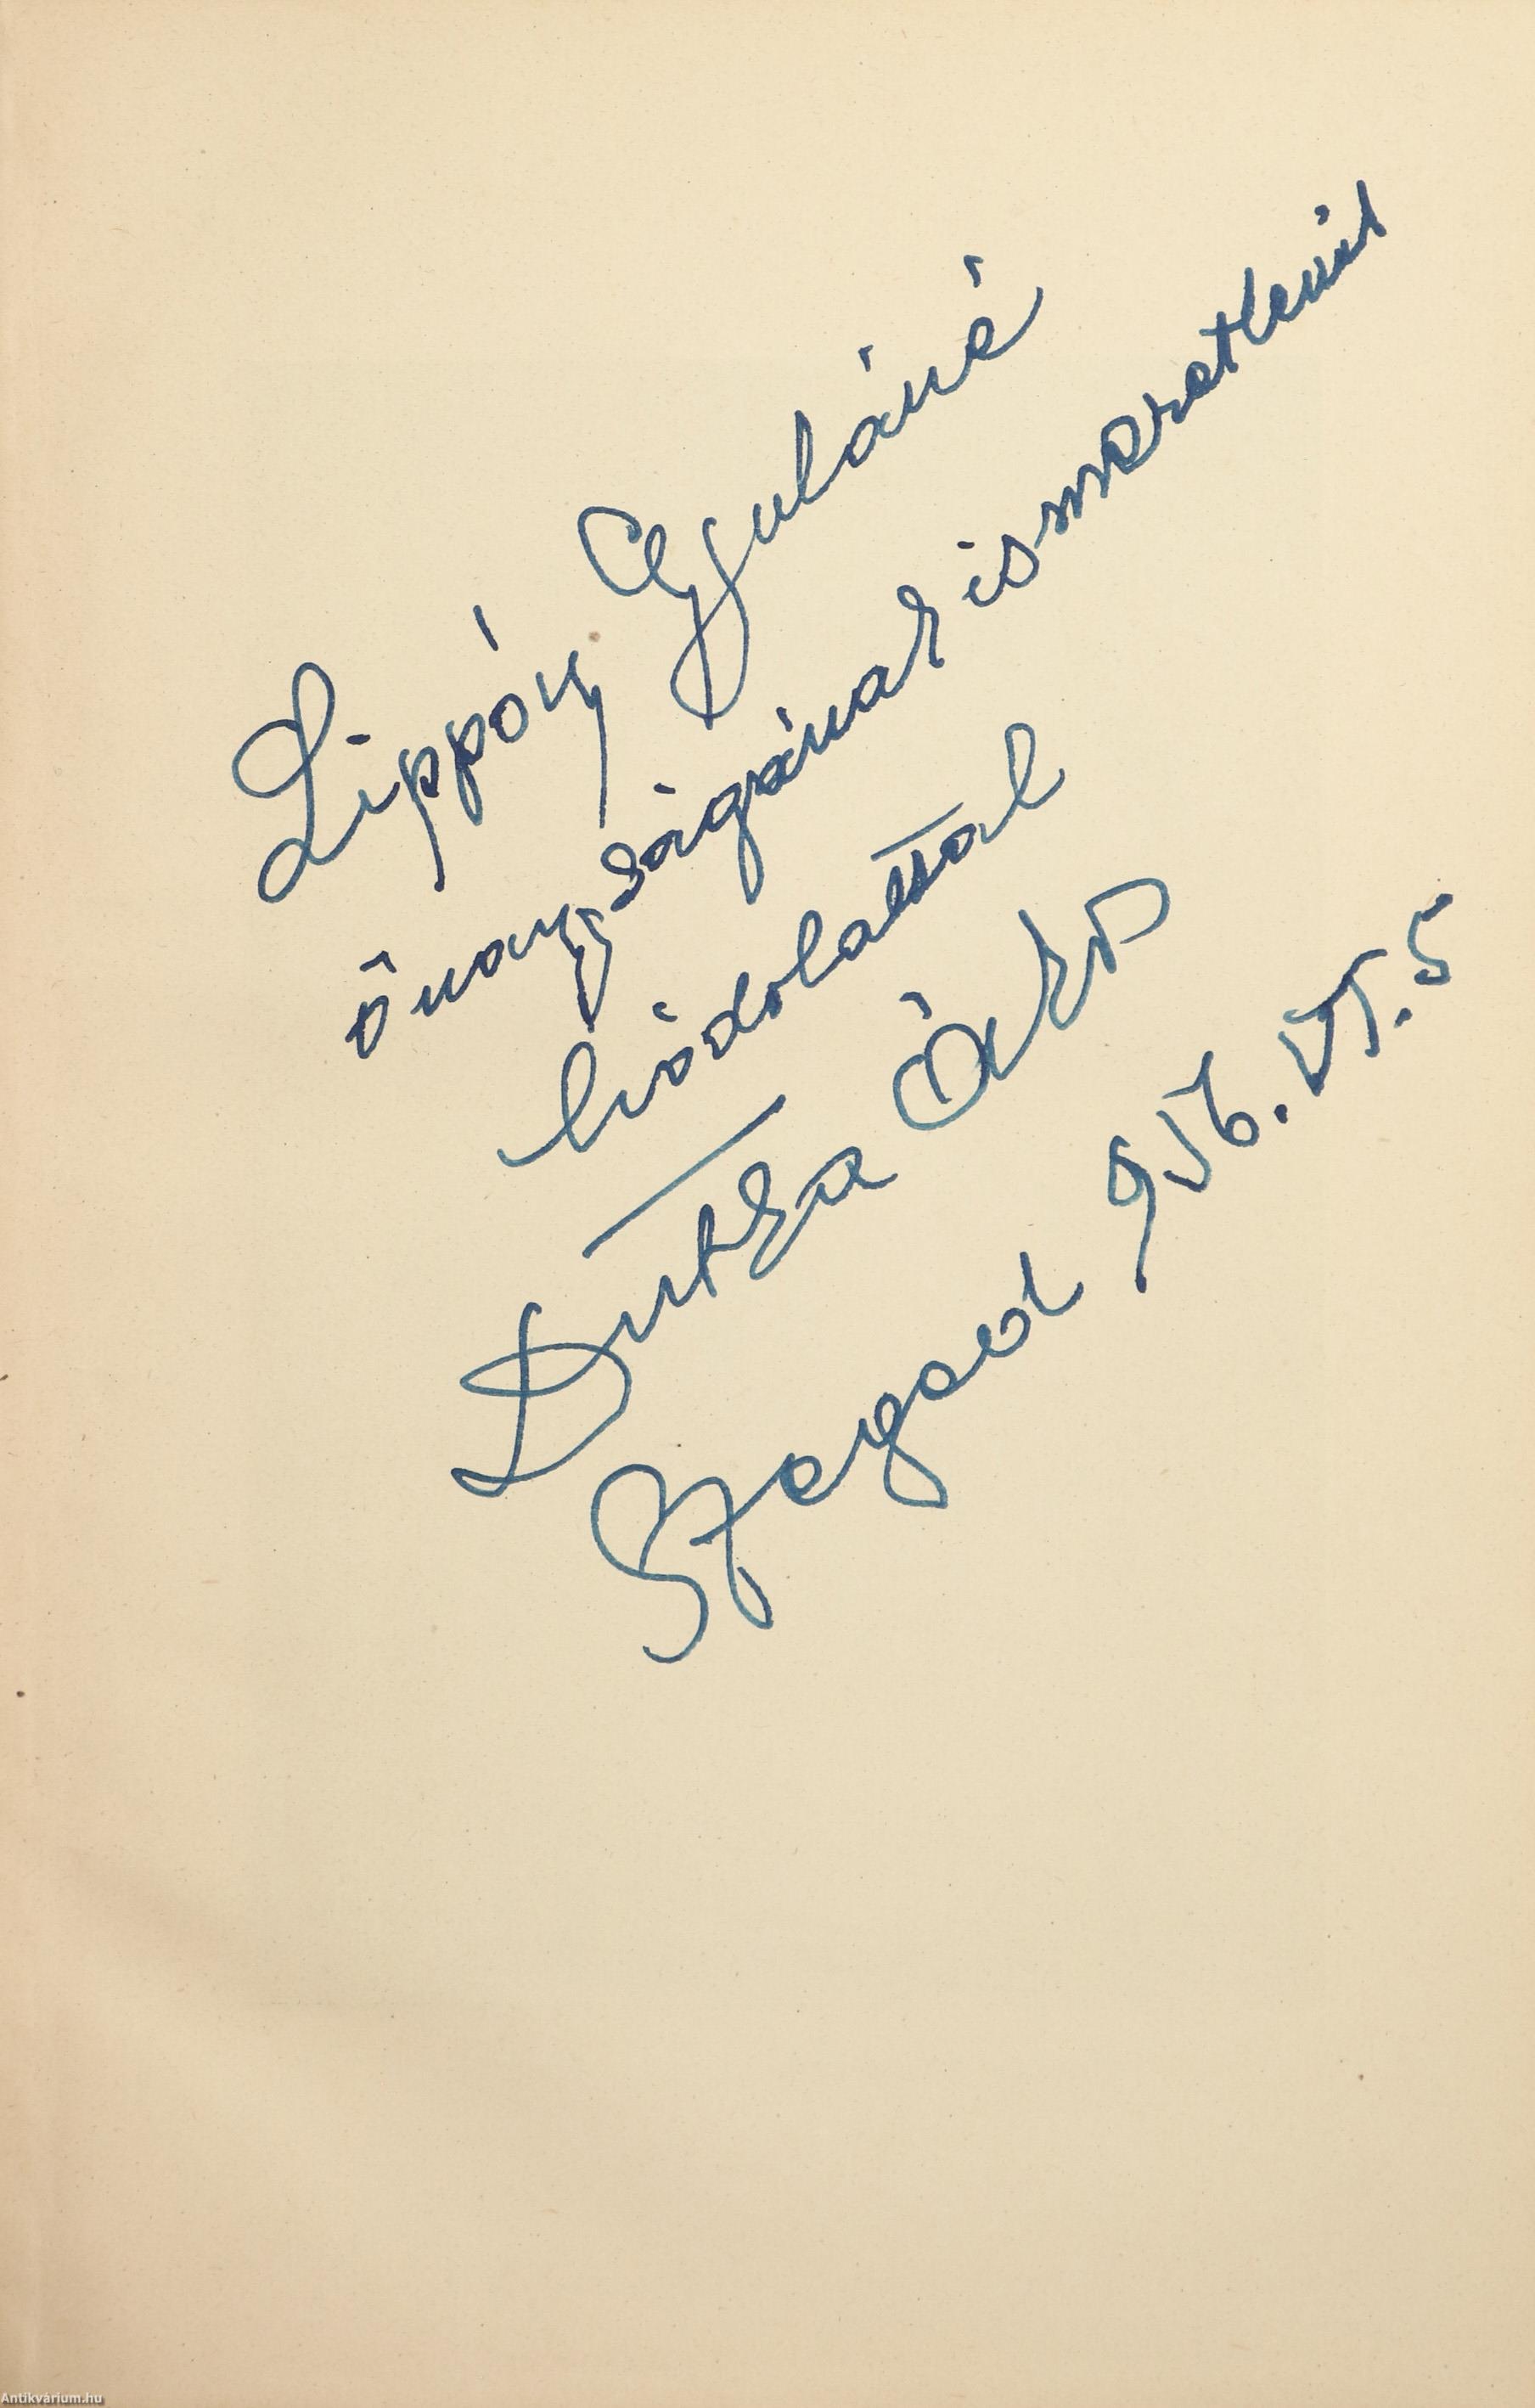 Lippóy Gyuláné
őnagyságának ismeretlenül
hódolattal
Dutka Ákos
Szeged 956. VI. 5
Antikvárium.hu